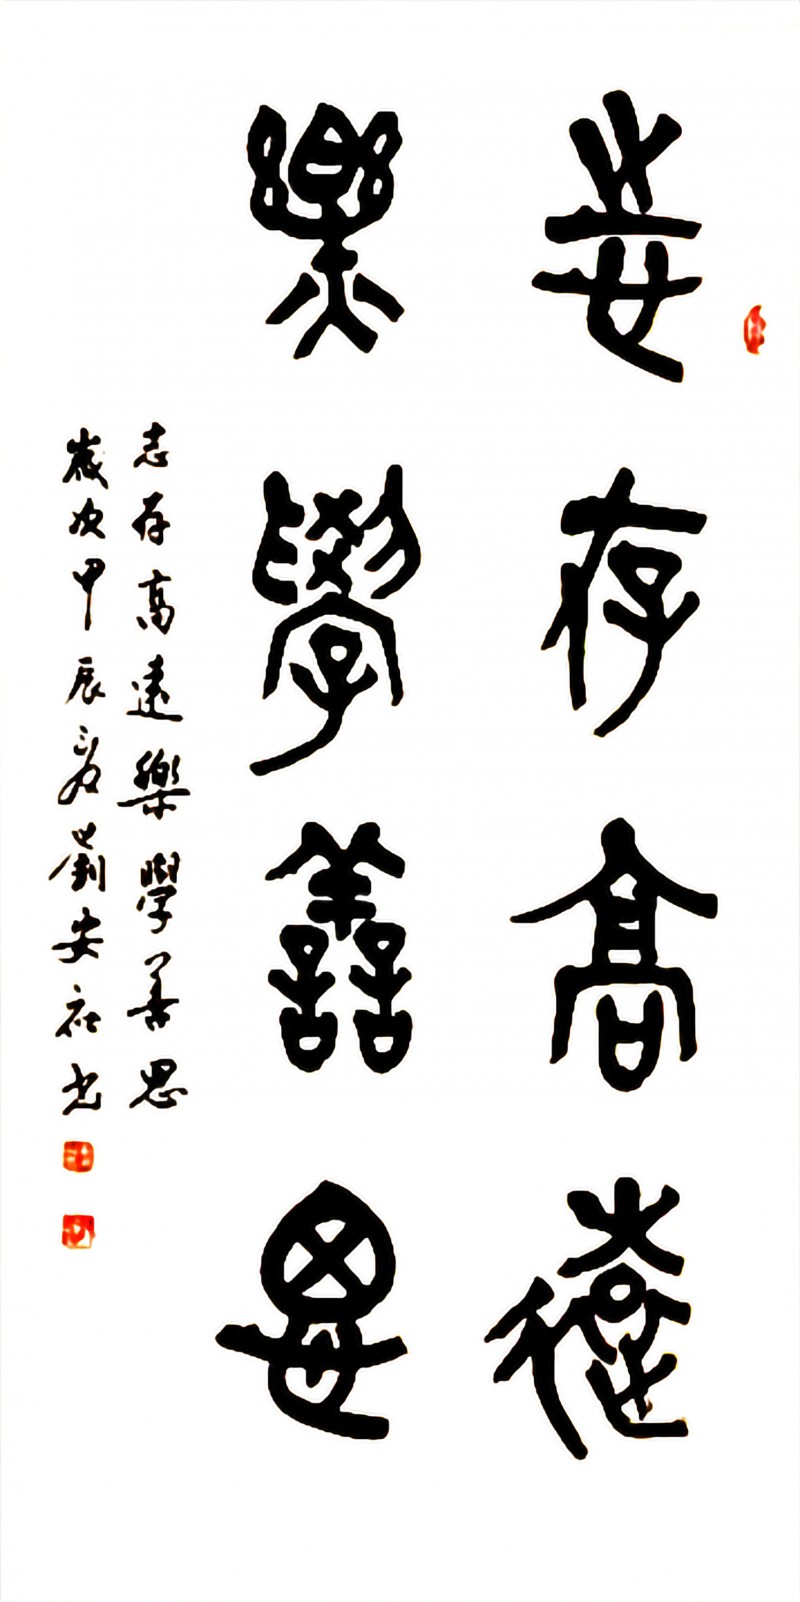 志存高遠
樂學善思
志存高遠樂學善思
歲次甲辰夏劉安社书